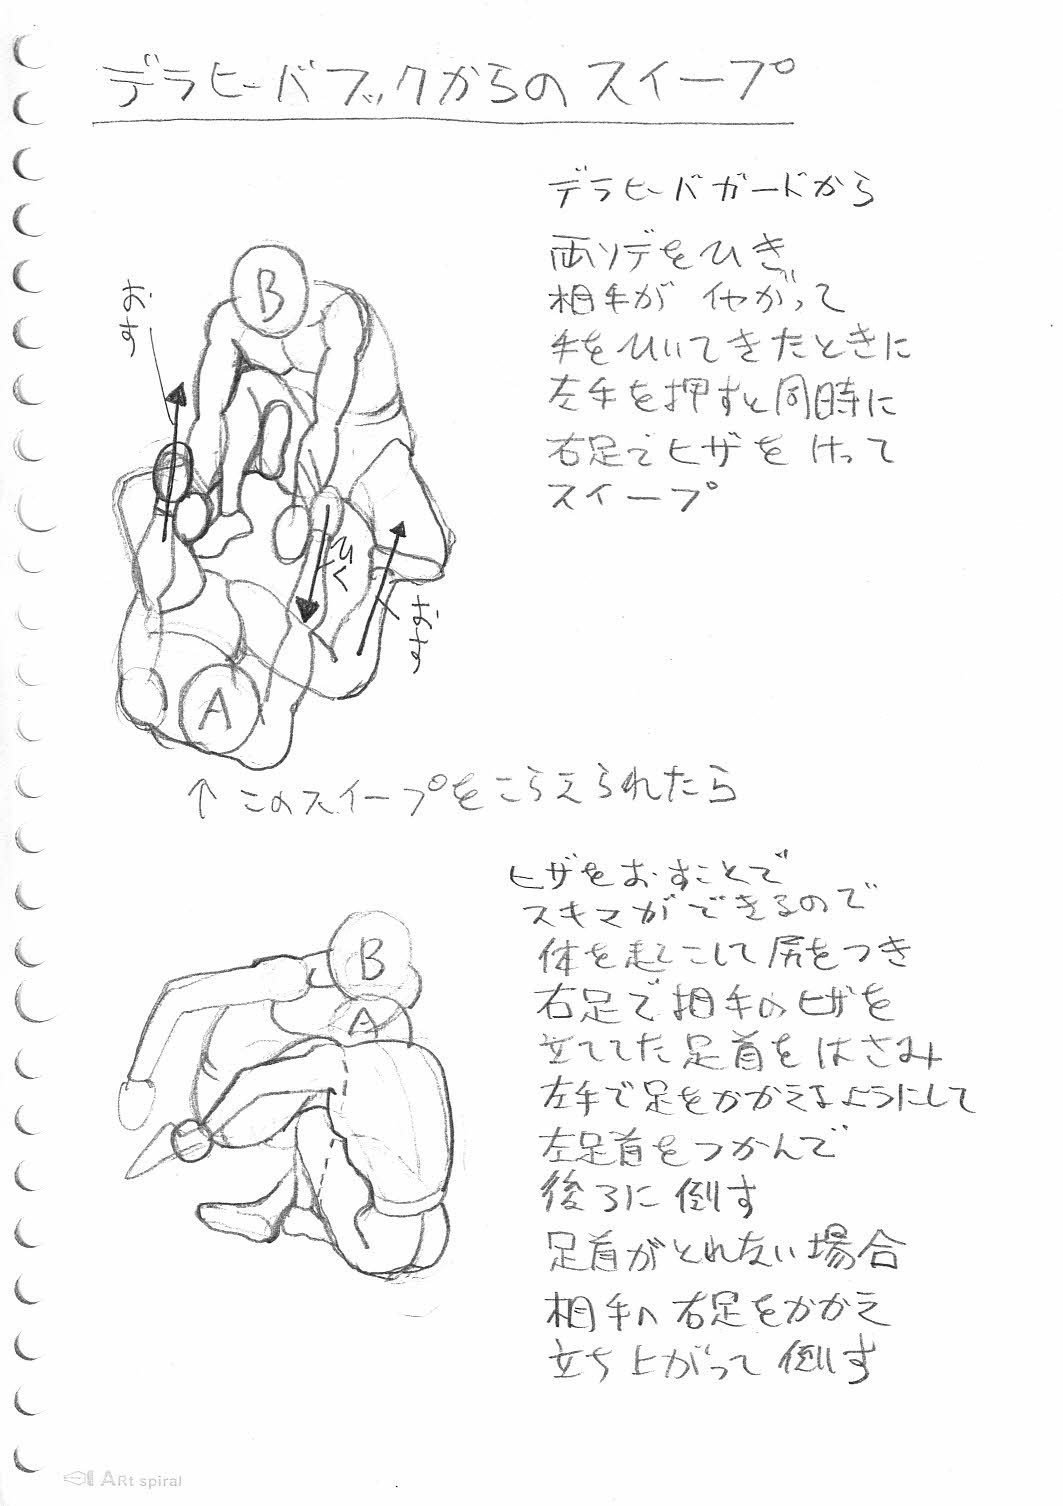 デラヒーバフックからのスイープ
デラヒーバガードから
両ソデをひき
相手がイヤがって
手をひいてきたときに
左手を押すと同時に
右足でヒザをけって
スイープ
B
おす
ひく
おす
A
↑ このスイープをこらえられたら
ヒザをおすことで
スキマができるので
体を起こして尻をつき
右足で相手のヒザを
立ててた足首をはさみ
左手で足をかかえるようにして
左足首をつかんで
後ろに倒す
足首がとれない場合
相手の右足をかかえ
立ち上がって倒す
B
A
ARt spiral